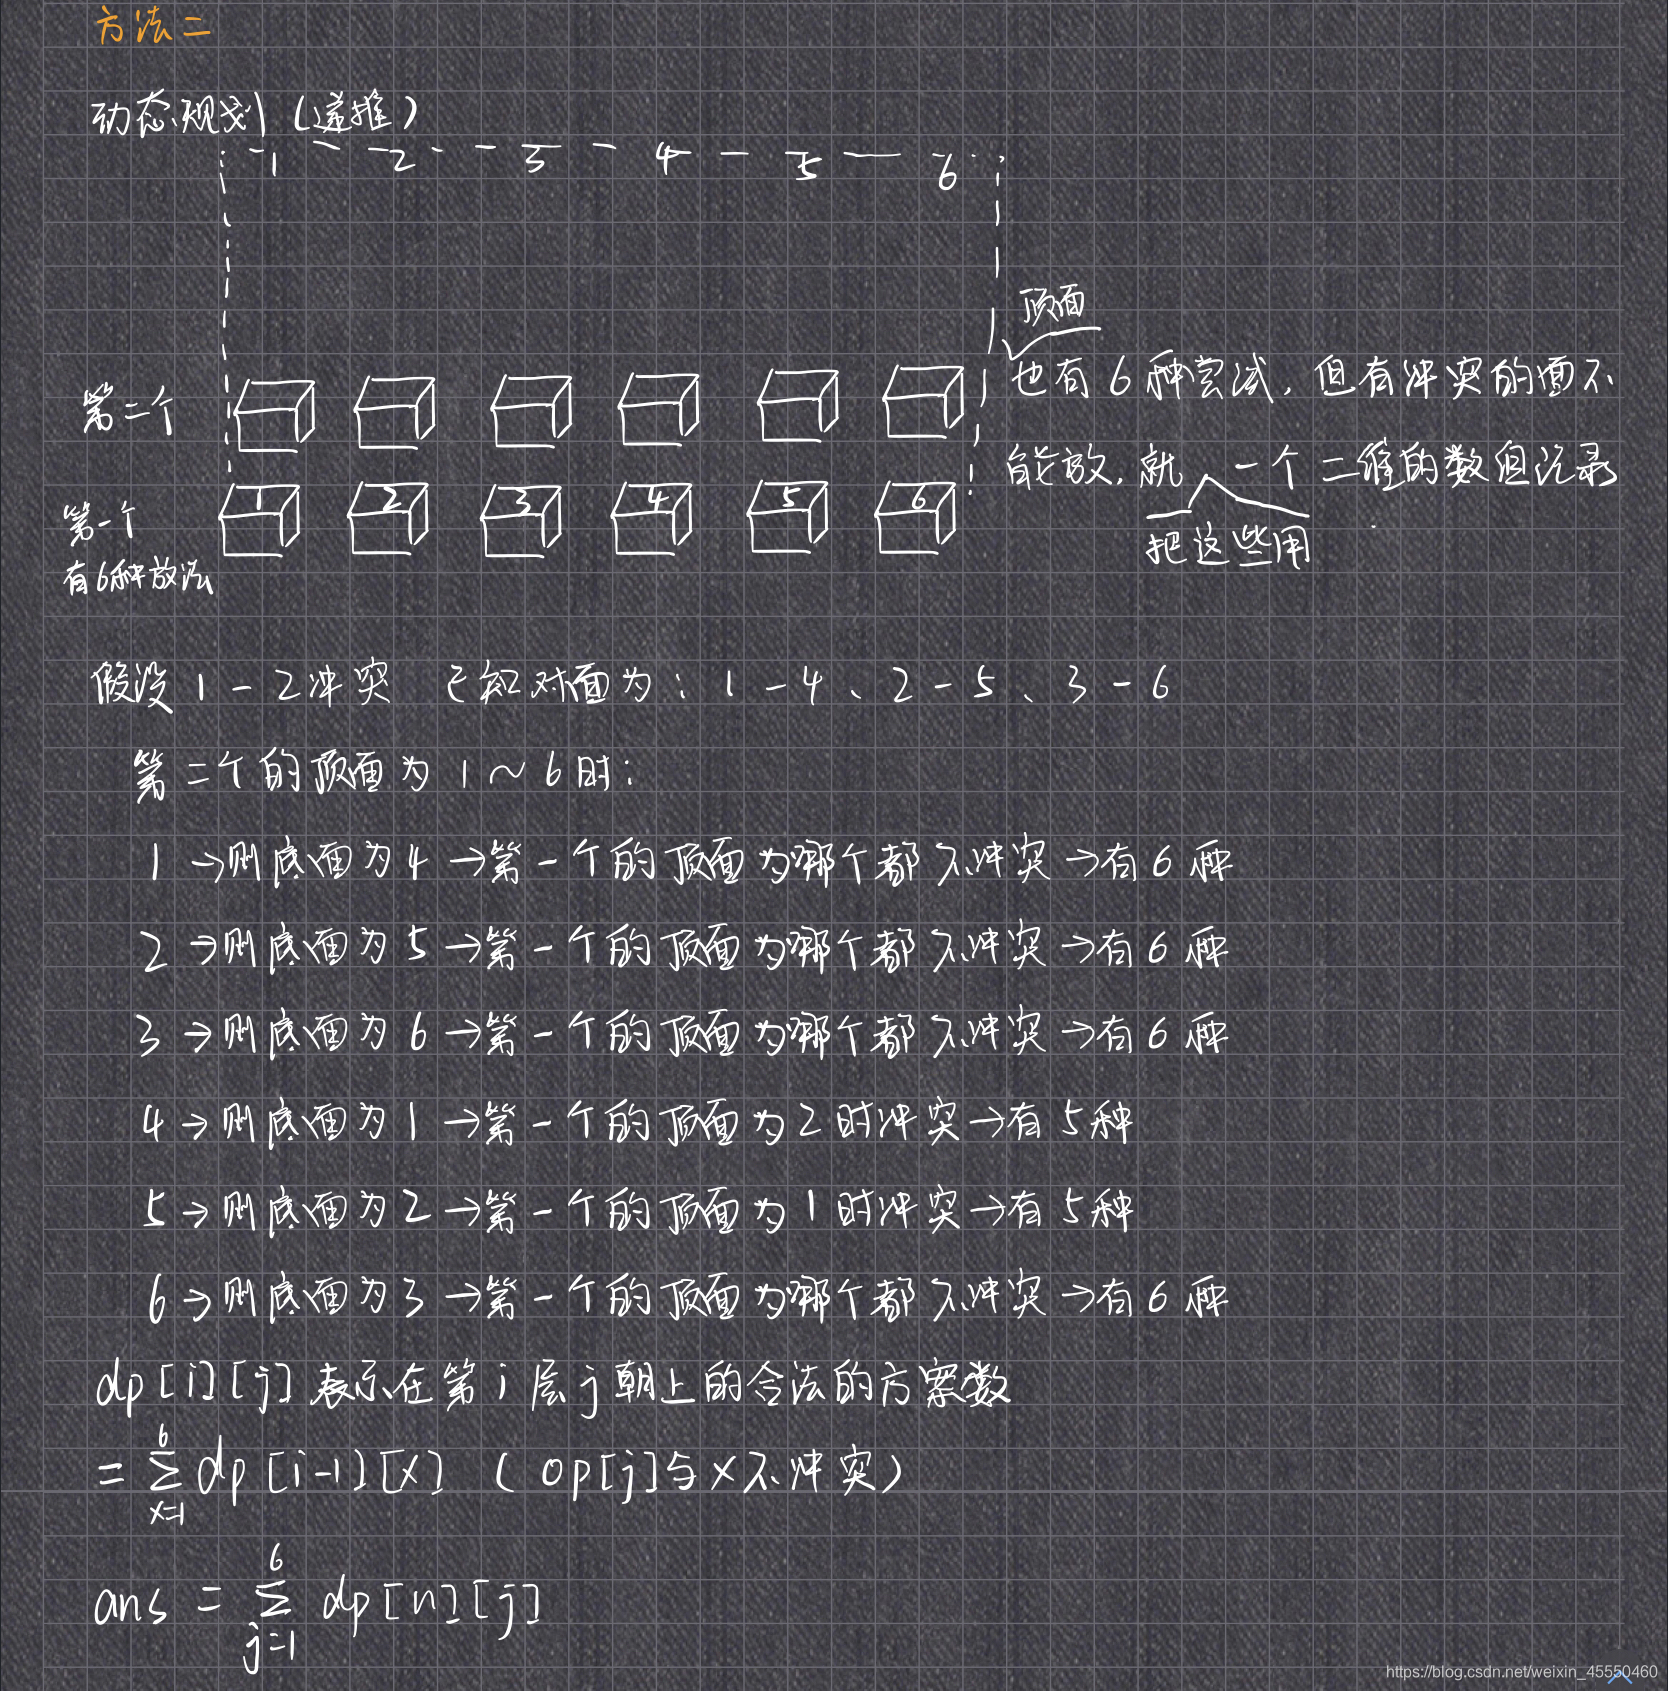 方法二
动态规划（递推）
1 2 3 4 5 6
顶面
也有6种尝试，但有冲突的面不
能放，就把这些用一个二维的数组记录
第二个
第一个 1 2 3 4 5 6
有6种放法
假设1-2冲突 已知对面为：1-4、2-5、3-6
第二个的顶面为1~6时：
1→则底面为4→第一个的顶面为哪个都不冲突→有6种
2→则底面为5→第一个的顶面为哪个都不冲突→有6种
3→则底面为6→第一个的顶面为哪个都不冲突→有6种
4→则底面为1→第一个的顶面为2时冲突→有5种
5→则底面为2→第一个的顶面为1时冲突→有5种
6→则底面为3→第一个的顶面为哪个都不冲突→有6种
dp[i][j]表示在第i层j朝上的合法的方案数
= ∑_{x=1}^{6} dp[i-1][x] （op[j]与x不冲突）
ans = ∑_{j=1}^{6} dp[n][j]
https://blog.csdn.net/weixin_45550460